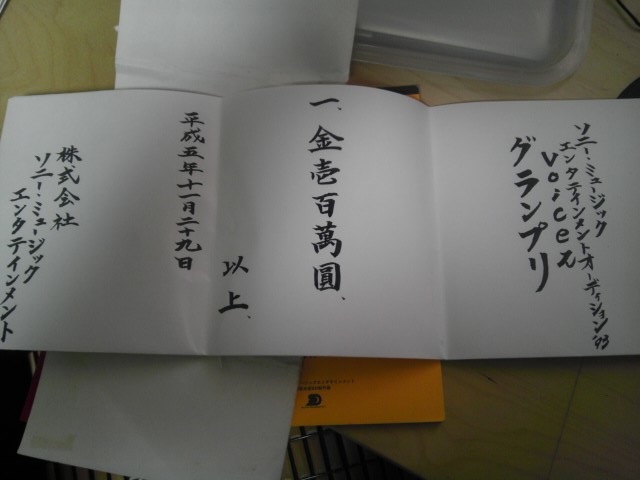 ソニー・ミュージック
エンタテインメントオーディション'93
Voiceズ
グランプリ
一、金壱百萬圓、
以上、
平成五年十一月二十九日
株式会社
ソニー・ミュージック
エンタテインメント